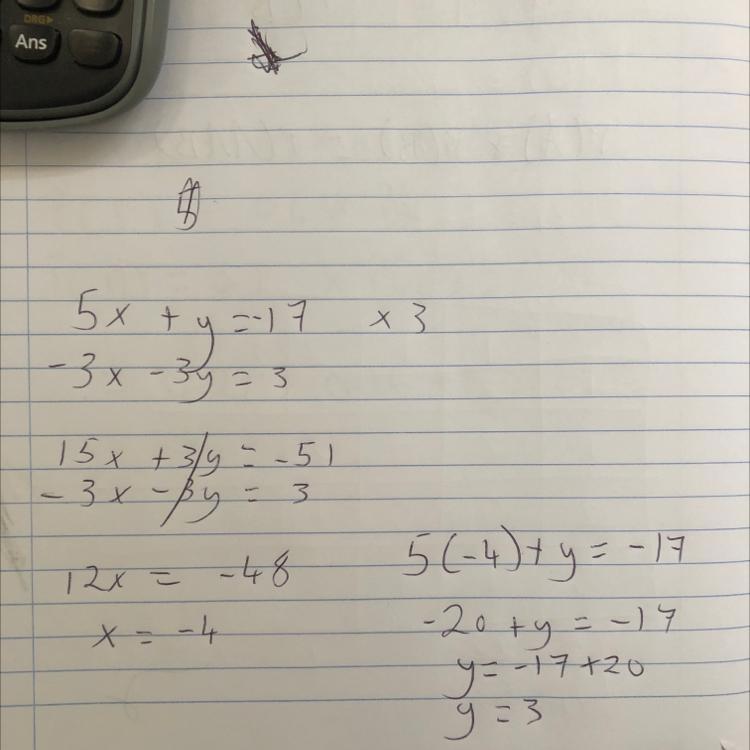 DRG▶
Ans
5x + y = -17 x 3
-3x - 3y = 3
15x + 3y = -51
- 3x - 3y = 3
12x = -48
x = -4
5(-4) + y = -17
-20 + y = -17
y = -17 + 20
y = 3